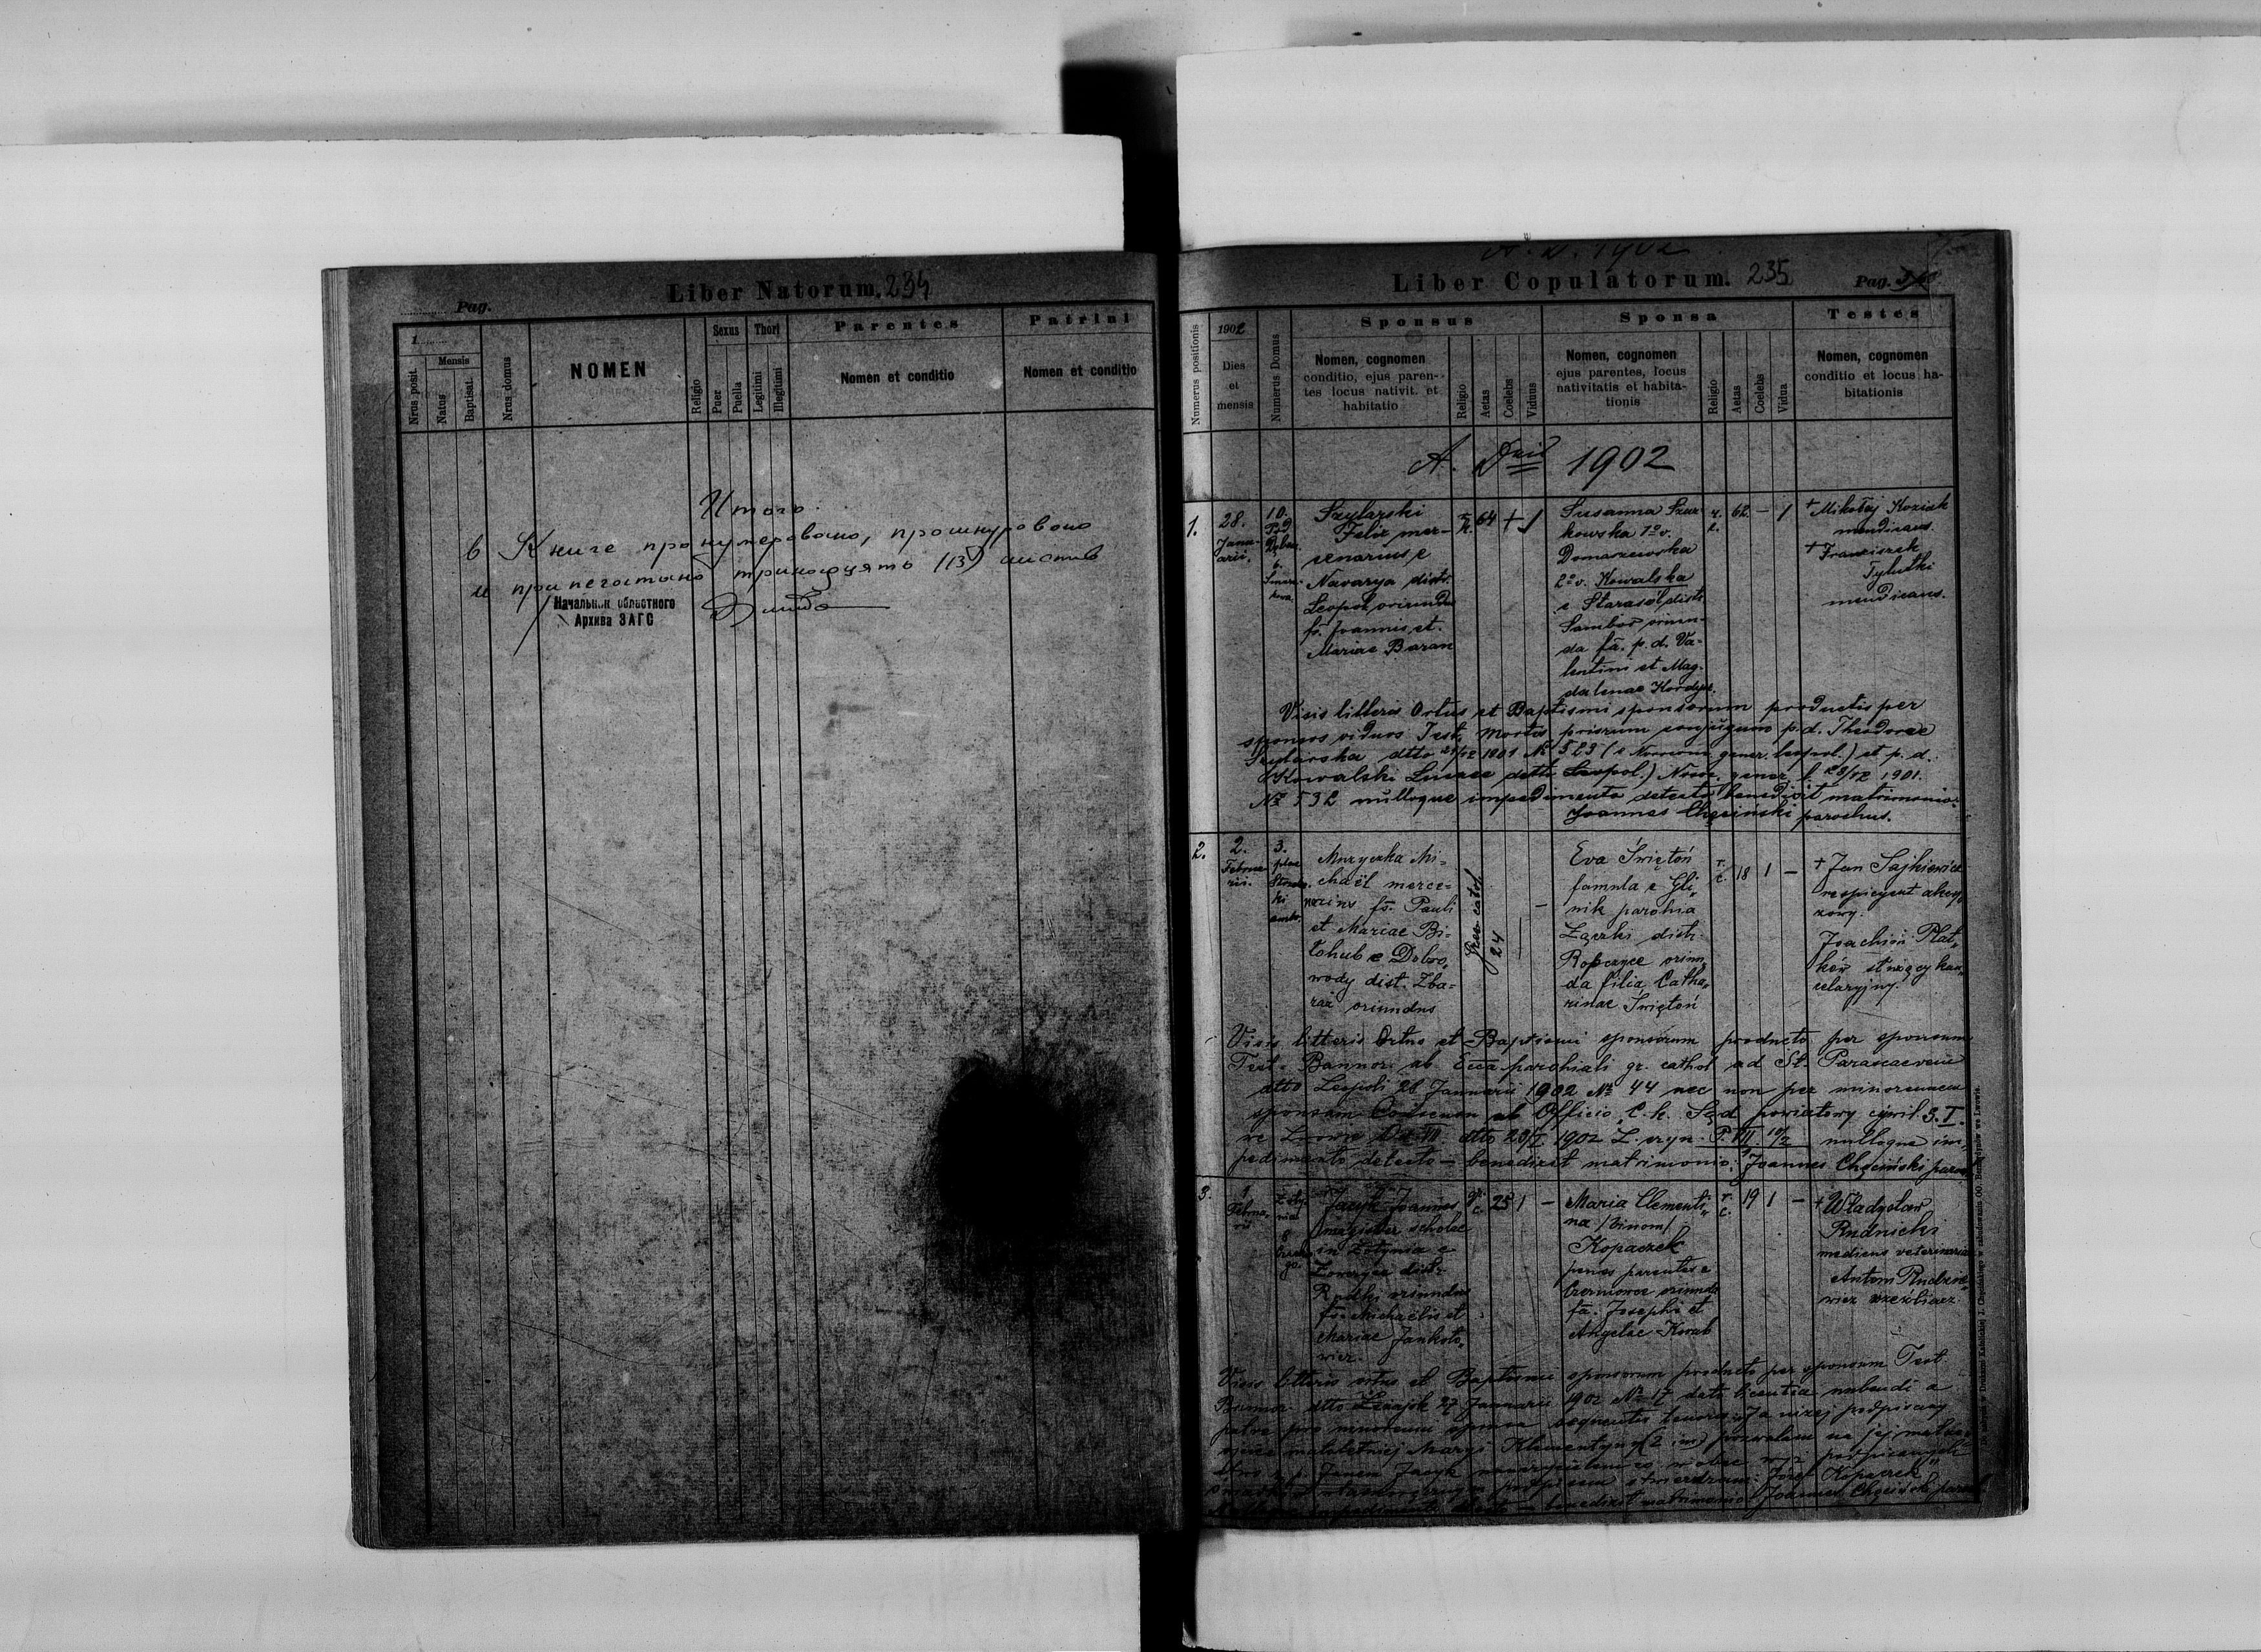 Pag.
Liber Natorum. 234
1
Nrus posit.
Mensis
Natus
Baptisat.
Nrus domus
NOMEN
Religio
Sexus
Puer
Puella
Thori
Legitimi
Illegitimi
Parentes
Nomen et conditio
Patrini
Nomen et conditio
Итого:
в Книге пронумеровано, прошнуровано
и припечатано тринадцать (13) листов
Начальник областного
Архива ЗАГС
A. D. 1902
Liber Copulatorum. 235
Pag.
Numerus positionis
1902
Dies
et
mensis
Numerus Domus
Sponsus
Nomen, cognomen
conditio, ejus paren-
tes locus nativit. et
habitatio
Religio
Aetas
Coelebs
Viduus
Sponsa
Nomen, cognomen
ejus parentes, locus
nativitatis et habita-
tionis
Religio
Aetas
Coelebs
Vidua
Testes
Nomen, cognomen
conditio et locus ha-
bitationis
A. Dni 1902
1.
28.
Janu-
arii.
10.
Szylarski
Felix mer-
cenarius e
Nawarya distr.
Leopol oriundus
fs. Joannis et
Mariae Baran
r.
64 + 1
Susanna Szur-
kowska 1º v.
Domaszewska
2º v. Kowalska
e Starasól distr.
Sambor oriun-
da fa. p. d. Va-
lentini et Mag-
dalenae Kordys.
r.
c.
62 – 1
+ Mikołaj Koziak
mendicans.
+ Franciszek
Tylutki
mendicans.
Visis litteris Ortus et Baptismi sponsorum productis per
sponsos viduos Test. mortis priorum conjugum p. d. Theodorae
Szylarska dtto 1901 Nº 523 ( gener. Leopol.) et p. d.
Kowalski Lucae dtto Leopol.) gener. 1901.
Nº 532 nulloque impedimento detecto benedixit matrimonio:
Joannes Chęciński parochus.
2.
2.
Februa-
rii.
3.
Muzyczka Mi-
chaël merce-
narius fs. Pauli
et Mariae Bi-
łohub e Dobro-
wody dist. Zba-
raż oriundus
Graeco cathol.
24
Eva Świętoń
famula e Gli-
nik parohia
Łączki distr.
Ropczyce oriun-
da filia Catha-
rinae Świętoń
r.
c.
18 1 –
+ Jan Sajkiewicz
respicyent akcy-
zowy.
Joachim Plat-
ków służący kan-
celaryjny.
Visis litteris Ortus et Baptismi sponsorum producto per sponsum
Test. Bannor. ab Ecca parohiali gr. cathol ad St. Parascaeveiu
dtto Leopoli 28 Januarii 1902 Nº 44 nec non per minorennem
sponsam Consensu ab Officio „C. k. Sąd powiatowy cywil. S. I.
we Lwowie Od. VII. dtto 28/I 1902 L. czyn. P. VII 10/2 nulloque im-
pedimento detecto – benedixit matrimonio: Joannes Chęciński paroch.
3.
1
Februa-
rii
Jacyk Joannes
magister scholae
in Żołynia e
distr.
Rudki oriundus
fs. Michaëlis et
Mariae Jankoto-
wicz.
gr.
c.
25 1 –
Maria Clementi-
na /binom/
Kopaczek
penes parentes e
Czerniowce oriunda
fa. Josephi et
Angelae Korab
r.
c.
19 1 –
+ Władysław
Rudnicki
medicus veterinariae
Antoni
Visis litteris ortus et Baptismi sponsorum producto per sponsum Test.
Bannor. dtto Leżajsk 27 Januarii 1902 Nº 17 data licentia nubendi a
patre pro minorenni sponsa sequentis tenoris: Ja niżej podpisany
ojciec małoletniej Maryi Klementyny (2 im) pozwalam na jej małżeń-
stwo z p. Janem Jacyk nauczycielem co w obec podpisanych
podpisem stwierdzam: Józef Kopaczek“
Nulloque impedimento detecto – benedixit matrimonio: Joannes Chęciński paroch.